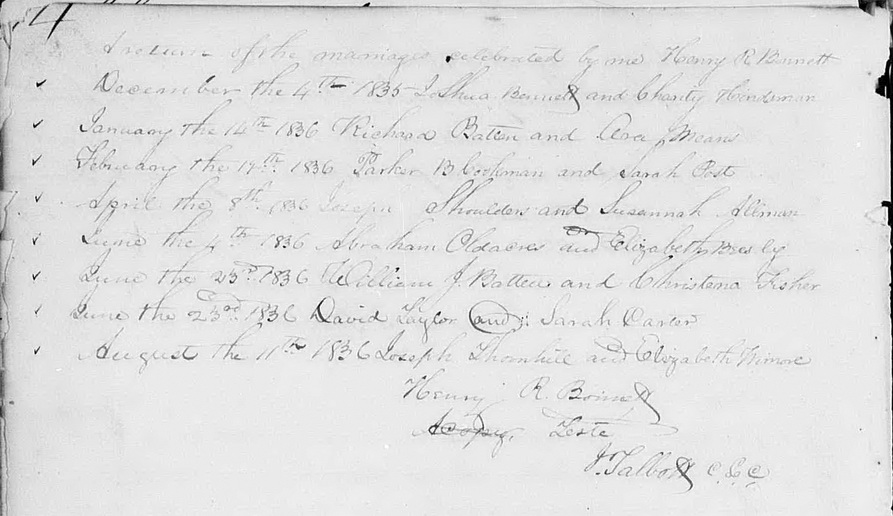 4
A return of the marriages celebrated by me Henry R Bennett
December the 4th 1835 Joshua Bennett and Charity Hindsman
January the 14th 1836 Richard Batten and Means
February the 19th 1836 Parker B Cookman and Sarah Post
April the 8th 1836 Joseph Shoulders and Susannah Allman
June the 4th 1836 Abraham Oldacres and Elizabeth
June the 23d 1836 William J Batten and Christena Fisher
June the 23rd 1836 David Taylor and Sarah Carter
August the 11th 1836 Joseph Thornhill and Elizabeth
Henry R. Bennett
A copy, Teste
J. Talbott C. L. C